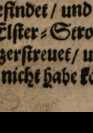 efindet / und
Elster-Stro
zerstreuet / u
nicht habe k